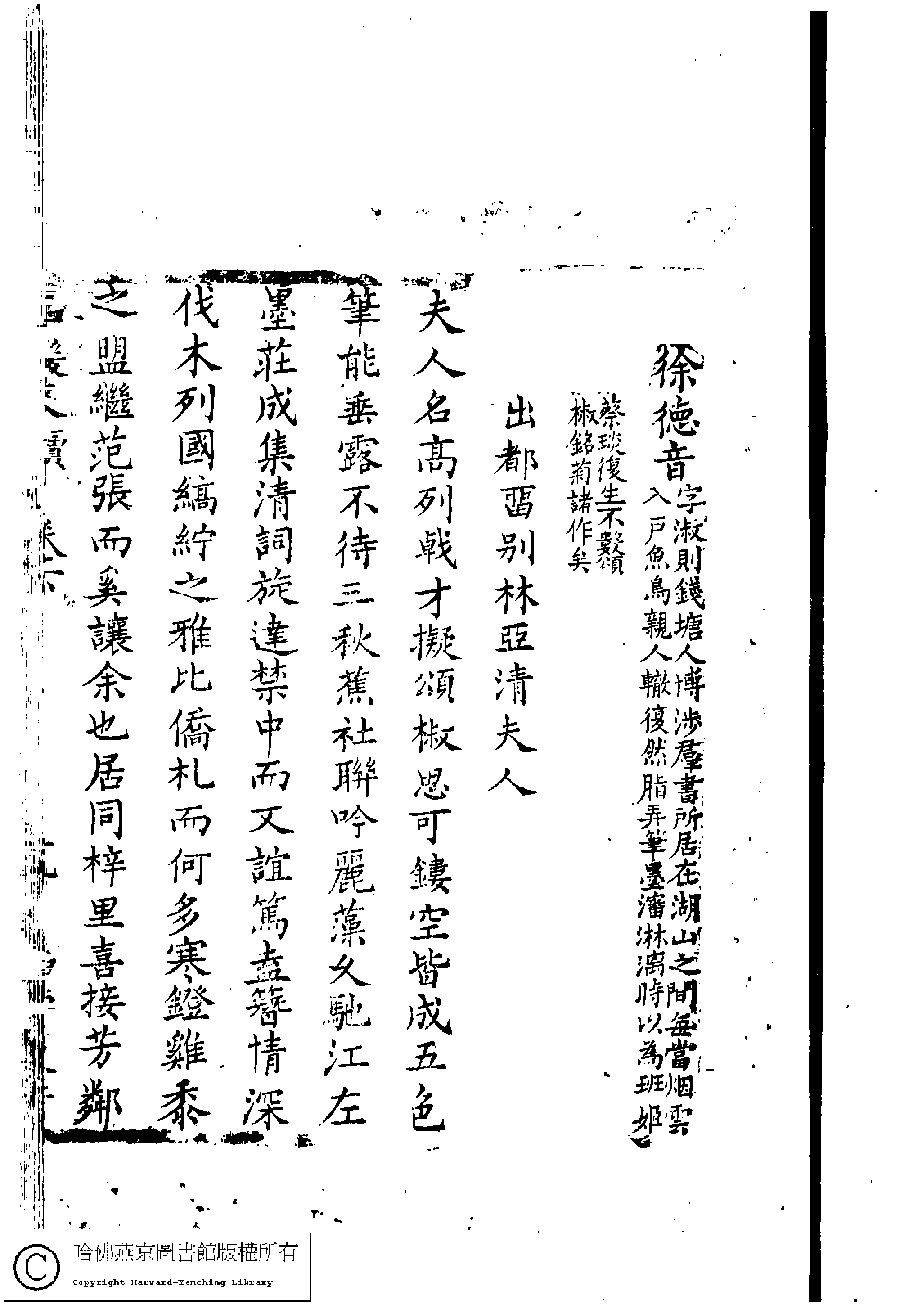 徐德音字淑則錢塘人博涉羣書所居在湖山之間每當烟雲
入戸魚鳥親人轍復然脂弄筆墨瀋淋漓時以為班姬
蔡琰復生不數頌
椒銘菊諸作矣
出都畱别林亞清夫人
夫人名高列戟才擬頌椒思可鏤空皆成五色
筆能垂露不待三秋蕉社聯吟麗藻久馳江左
墨莊成集清詞旋達禁中而又誼篤盍簪情深
伐木列國縞紵之雅比僑札而何多寒鐙雞黍
之盟繼范張而奚讓余也居同梓里喜接芳鄰
哈佛燕京圖書館版權所有
Copyright Harvard-Yenching Library